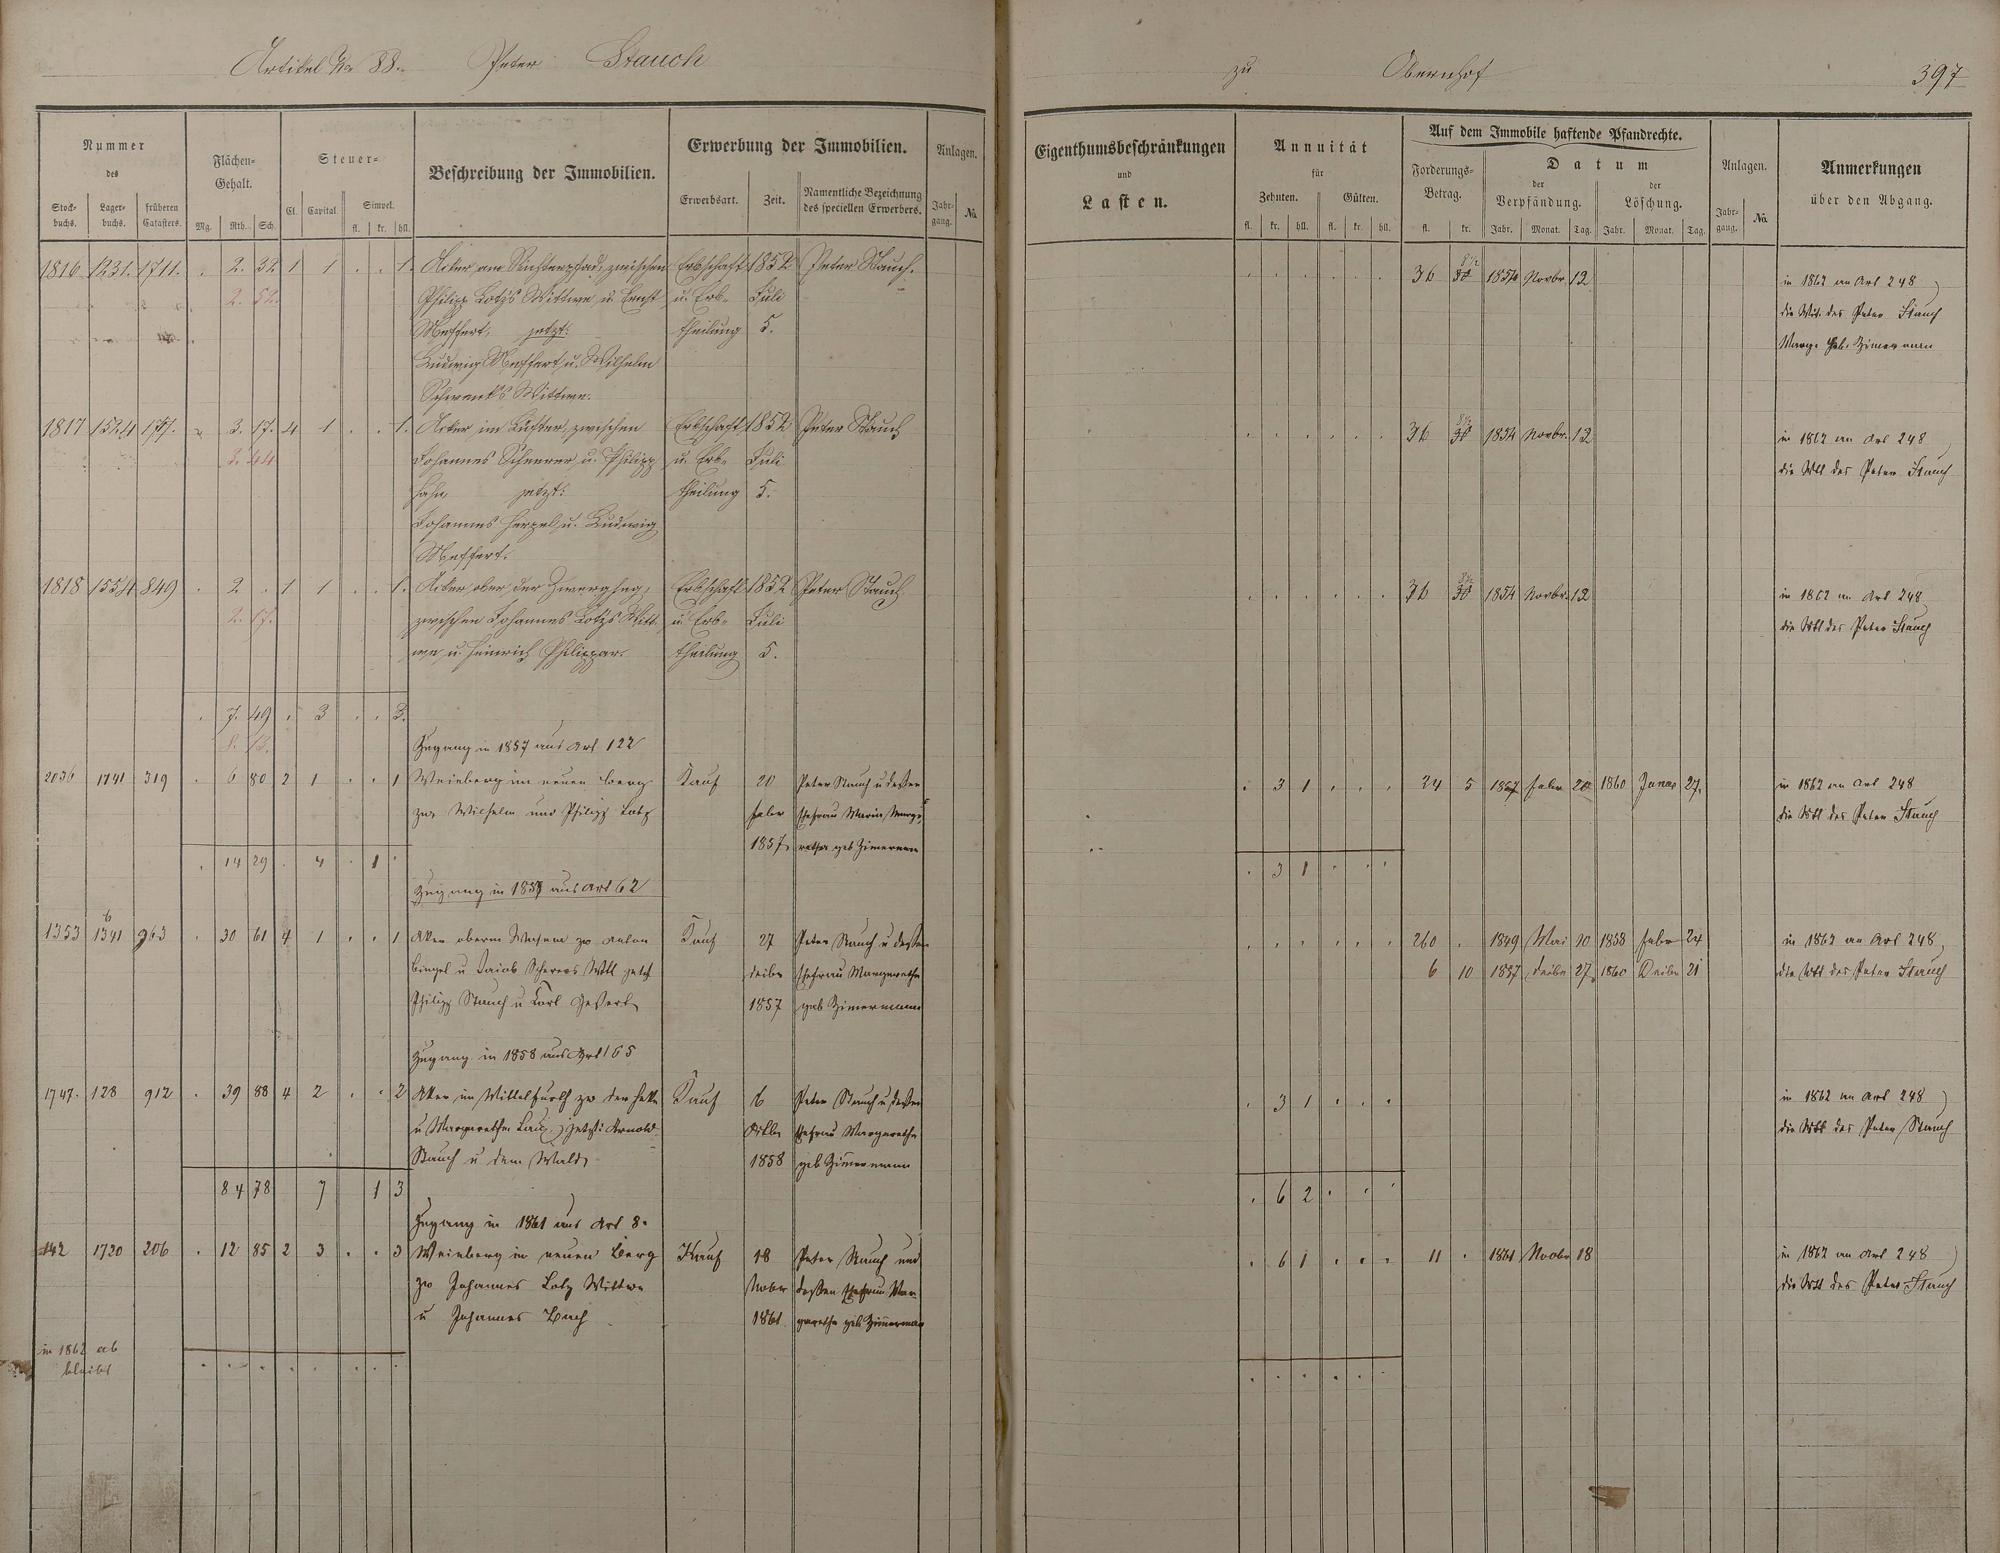 Artikel No 88. Peter Stauch
zu Obernhof 397
Nummer des
Stock-buchs. Lager-buchs. früheren Catasters.
Flächen-Gehalt.
Mg. Rth. Sch.
Steuer-
Cl. Capital Simpel.
fl. kr. hll.
Beschreibung der Immobilien.
Erwerbung der Immobilien.
Erwerbsart. Zeit. Namentliche Bezeichnung des speciellen Erwerbers.
Anlagen.
Jahr-gang. No.
Eigenthumsbeschränkungen
und
Lasten.
Annuität
für
Zehnten. Gülten.
fl. kr. hll. fl. kr. hll.
Auf dem Immobile haftende Pfandrechte.
Forderungs-Betrag.
fl. kr.
Datum
der Verpfändung. der Löschung.
Jahr. Monat. Tag. Jahr. Monat. Tag.
Anlagen.
Jahr-gang. No.
Anmerkungen
über den Abgang.
1816. 1231. 1711. . 2. 32 1 1 . . 1. Acker am zwischen Erbschaft 1852 Peter Stauch. 36 1854 Novbr. 12 in 1862 an Art 248
2. 52. Philipp Lotz's Wittwe u. Ernst u. Erb- Juli die Wit. des Peter Stauch
Meffert, jetzt: theilung 5. Marg. geb. Zimermann
Ludwig Meffert u. Wilhelm
Schwenk's Wittwe.
1817 1534 3. 17. 4 1 . . 1. Acker im zwischen Erbschaft 1852 Peter Stauch 36 1854 Novbr. 12 in 1862 an Art 248
3. 44 Johannes Scherrer u. Philipp u. Erb- Juli die Wtt des Peter Stauch
Hahn jetzt: theilung 5.
Johannes Herzel u. Ludwig
Meffert.
1818 1554 849 . 2 . 1 1 . . 1. Acker ober der zwischen Erbschaft 1852 Peter Stauch 36 1854 Novbr. 12 in 1862 an Art 248
2. 17. zwischen Johannes Lotz's Witt- u. Erb- Juli die Wtt des Peter Stauch
we u. Heinrich Philippar. theilung 5.
. 7. 49 . 3 . . 3.
8. 13. Zugang in 1857 aus Art 122
2036 1741 319 . 6 80 2 1 . . 1 Weinberg im neuen Berg Kauf 20 Peter Stauch u dessen . 3 1 . . . 24 5 1857 Febr 20 1860 Januar 27. in 1862 an Art 248
zw Wilhelm und Philipp Lotz Febr Ehefrau Maria Marga- die Wtt des Peter Stauch
1857. retha geb Zimermann
. 14 29 . 4 . 1 . . 3 1 . . .
Zugang in 1857 aus Art 62
1353 1341 b 963 . 30 61 4 1 . . 1 Aker oberm Wasem zw Anton Kauf 27 Peter Stauch u dessen 260 . 1849 Mai 10 1858 Febr 24 in 1862 an Art 248
Bingel u Jacob Scherers Wtt jetzt Ehefrau Margaretha 6 10 1857 27 1860 21 die Wtt des Peter Stauch
Philipp Stauch u Karl 1857 geb Zimermann
Zugang in 1858 aus Art 165
1747. 128 912 . 39 88 4 2 . . 2 Aker im zw der Kauf 6 Peter Stauch u dessen . 3 1 . . . in 1862 an Art 248
u Margaretha Laux, jetzt: Arnold Ehefrau Margaretha die Wtt des Peter Stauch
Stauch u dem Wald 1858 geb Zimermann
84 78 7 1 3 . 6 2 . . .
Zugang in 1861 aus Art 8.
142 1720 206 . 12 85 2 3 . . 3 Weinberg in neuen Berg Kauf 18 Peter Stauch und . 6 1 . . . 11 . 1861 Novbr 18 in 1862 an Art 248
zw Johannes Lotz Wittwe Novbr dessen Ehefrau Mar- die Wtt des Peter Stauch
u Johannes Bach 1861 garetha geb Zimmerman
in 1862 ab
bleibt . . . . . . . .